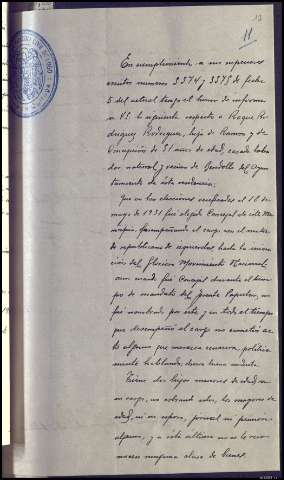 13
11
En cumplimiento a sus superiores
escritos numeros 3374 y 3375 de fecha
5 del actual tengo el honor de informar
a VS. lo siguiente respecto a Roque Ro-
driguez Rodriguez, hijo de Ramon y de
Concepción de 51 años de edad, casado labra-
dor natural y vecino de del Ayun-
tamiento de esta residencia.
Que en las elecciones verificadas el 10 de
mayo de 1931 fué elegido Concejal de este Mu-
nicipio, desempeñando el cargo con el matiz
de republicano de izquierdas, hasta la
del Glorioso Movimiento Nacional,
aun cuando fué Concejal durante el tiem-
po de mandato del Frente Popular, no
fué nombrado por este y en todo el tiempo
que desempeñó el cargo no cometió ac-
to alguno que merezca censura, politica-
mente hablando, buena conducta.
Tiene dos hijos menores de edad, a
su cargo, no estando los mayores de
edad, ni su esposa, jornal ni pension
alguna, y a este ultimo no se le reco-
nocen ninguna clase de bienes.